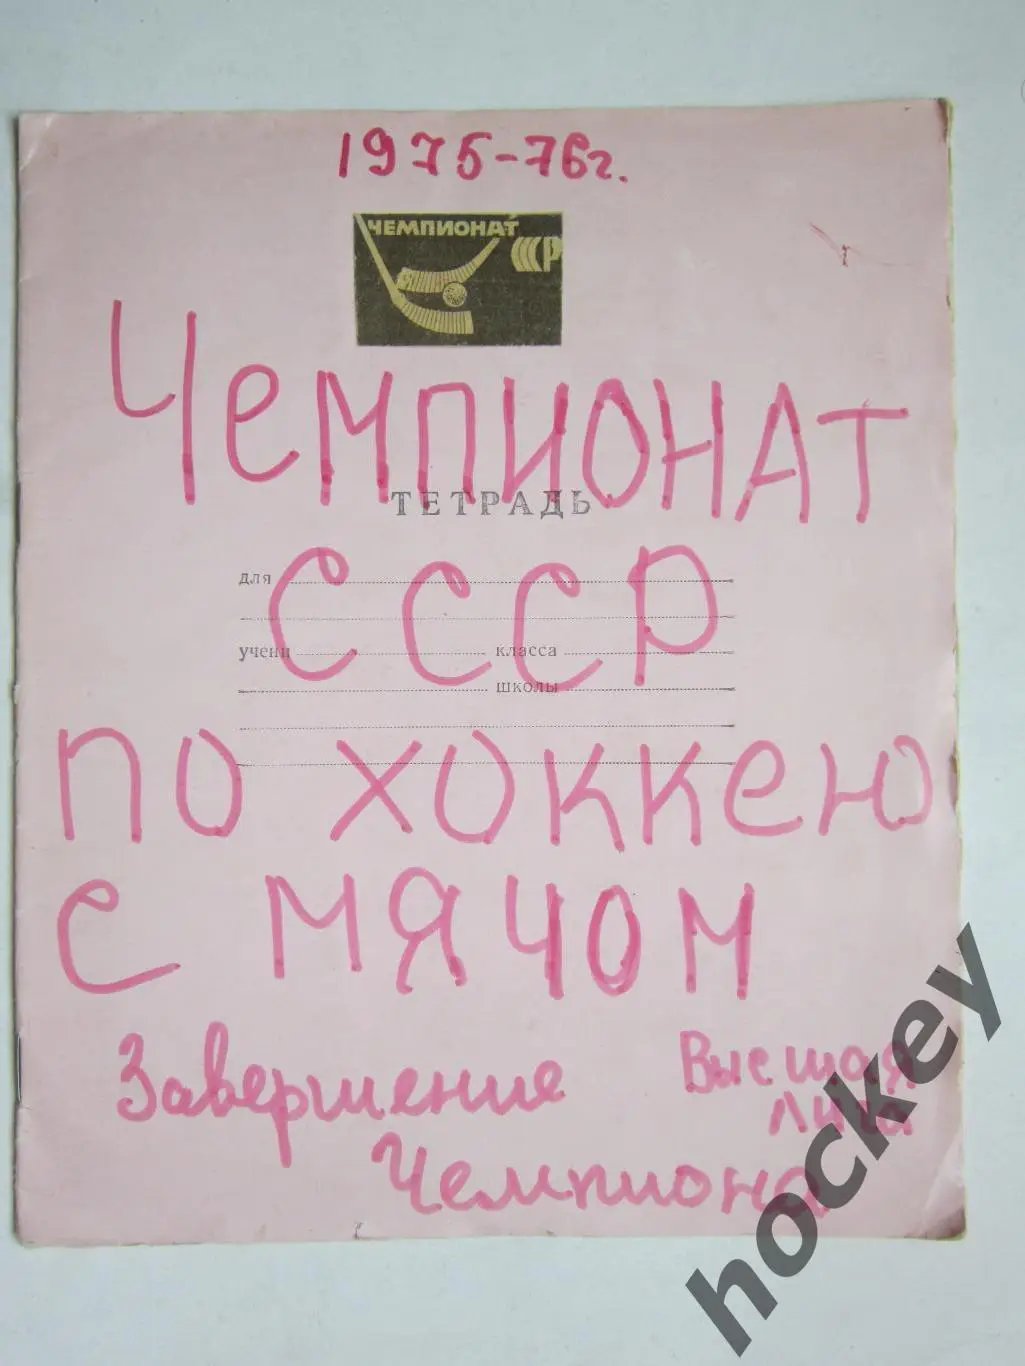 1975-76г.
ЧЕМПИОНАТ
СССР
ЧЕМПИОНАТ
ТЕТРАДЬ
СССР
для
учени класса
школы
ПО ХОККЕЮ
С МЯЧОМ
Завершение Высшая
Лига
Чемпиона
hockey